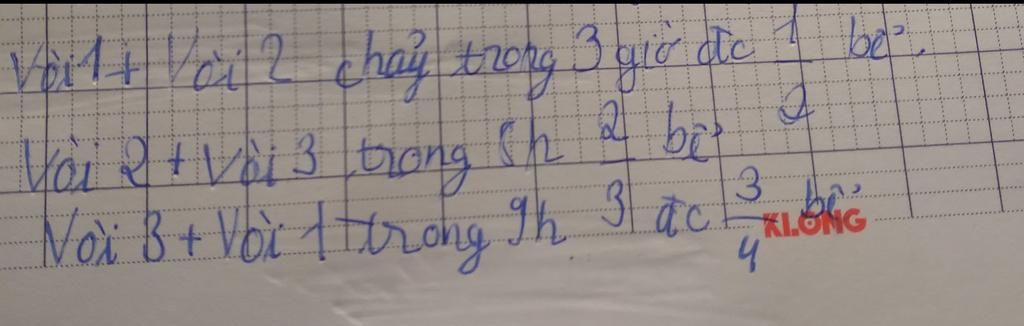 Vòi 1 + Vòi 2 chảy trong 3 giờ đc 1/2 bể.
Vòi 2 + Vòi 3 trong 5h 2/3 bể
Vòi 3 + Vòi 1 trong 9h đc 3/4 bể
KLONG